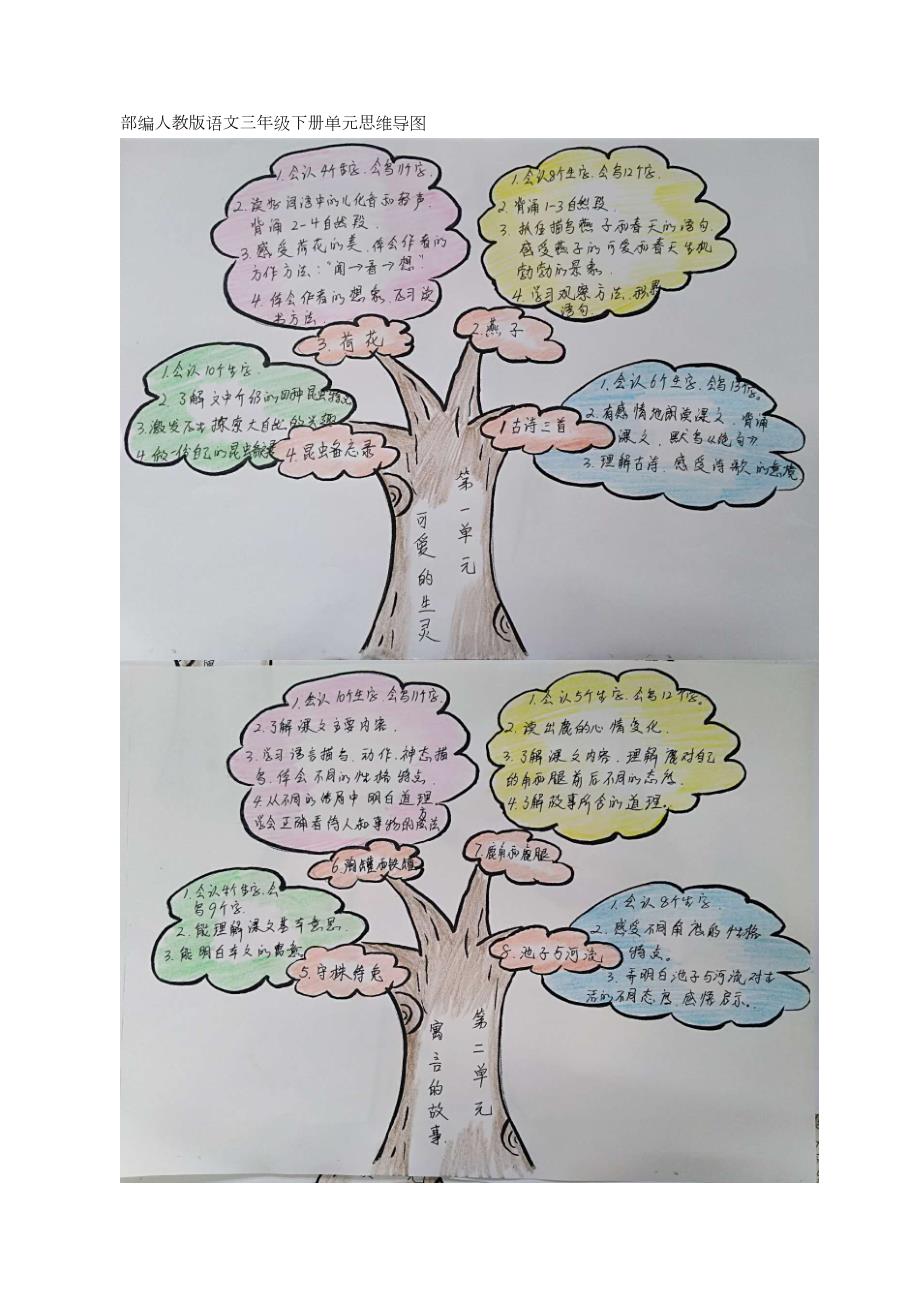 部编人教版语文三年级下册单元思维导图
1.会认4个生字.会写11个字.
2.读好词语中的儿化音和轻声.
背诵2-4自然段.
3.感受荷花的美.体会作者的
方作方法:"闻→看→想"
4.体会作者的想象.
书方法.
3.荷花
1.会认8个生字.会写12个字.
2.背诵1-3自然段.
3.抓住描写燕子和春天的语句.
感受燕子的可爱和春天生机
勃勃的景象.
4.学习观察方法.积累
语句.
2.燕子
1.会认10个生字.
2.了解文中介绍的四种昆虫特点
3.激发探索大自然的兴趣
4.做一份自己的昆虫备忘录
4.昆虫备忘录
1.会认6个生字.会写13个字。
2.有感情地朗读课文.背诵
课文.默写《绝句》
3.理解古诗.感受诗歌的意境
1古诗三首
第一单元
可爱的生灵
1.会认10个生字.会写11个字.
2.了解课文主要内容.
3.学习语言描写、动作、神态描
写.体会不同的性格特点.
4.从不同的结局中明白道理
学会正确看待人和事物的方法
6.陶罐和铁罐
1.会认5个生字.会写12个字。
2.读出鹿的心情变化.
3.了解课文内容.理解鹿对自己
的角和腿前后不同的态度.
4.了解故事所含的道理。
7.鹿角和鹿腿
1.会认4个生字.会
写9个字.
2.能理解课文基本意思.
3.能明白本文的寓意.
5.守株待兔
1.会认8个生字.
2.感受不同角度的性格
特点.
3.弄明白池子与河流对生
活的不同态度.感悟启示..
8.池子与河流
第二单元
寓言的故事.